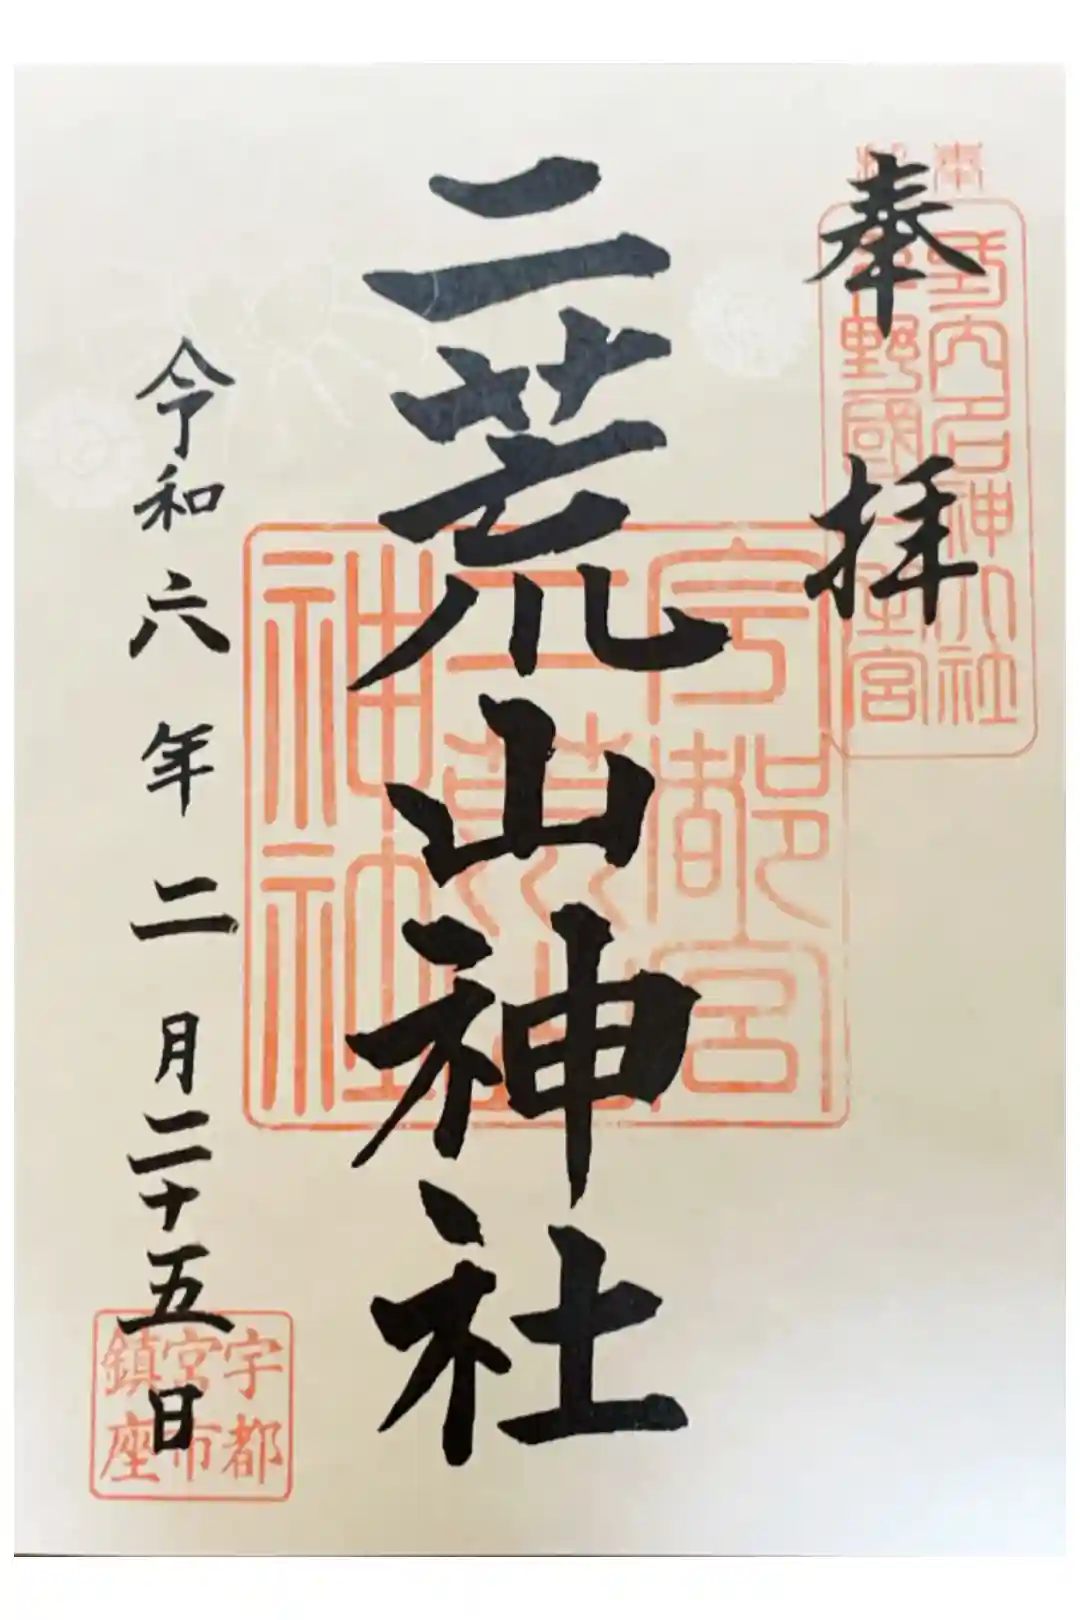 奉拝
二荒山神社
令和六年二月二十五日
式内名神大社
野國一宮
宇都宮
二荒山
神社
宇都
宮市
鎮座